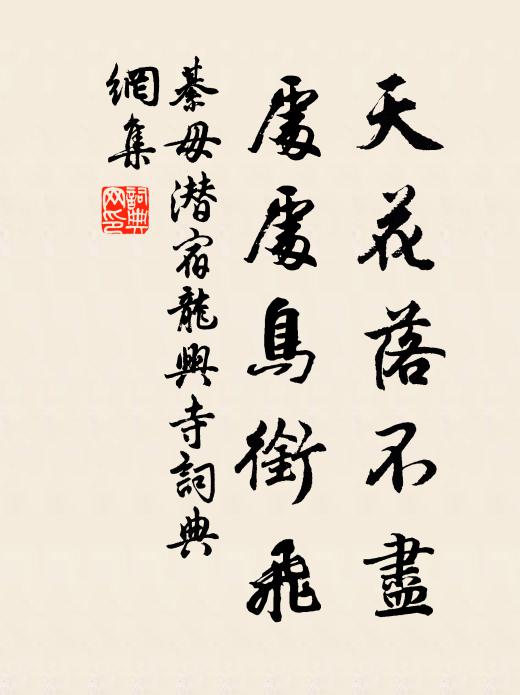 天花落不盡
處處鳥銜飛
綦毋潜宿龍興寺詞典
網集
詞典
网印